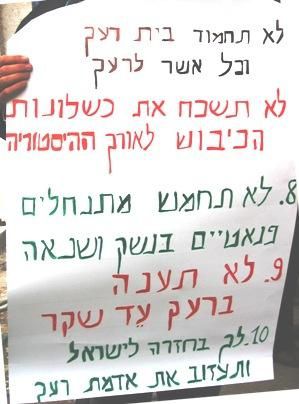 לא תחמוד בית רעך
וכל אשר לרעך
לא תשכח את כשלונות
הכיבוש לאורך ההיסטוריה
8. לא תחמש מתנחלים
פנאטיים בנשק ושנאה
9. לא תענה
ברעך עֵד שקר
10. לך בחזרה לישראל
ותעזוב את אדמת רעך